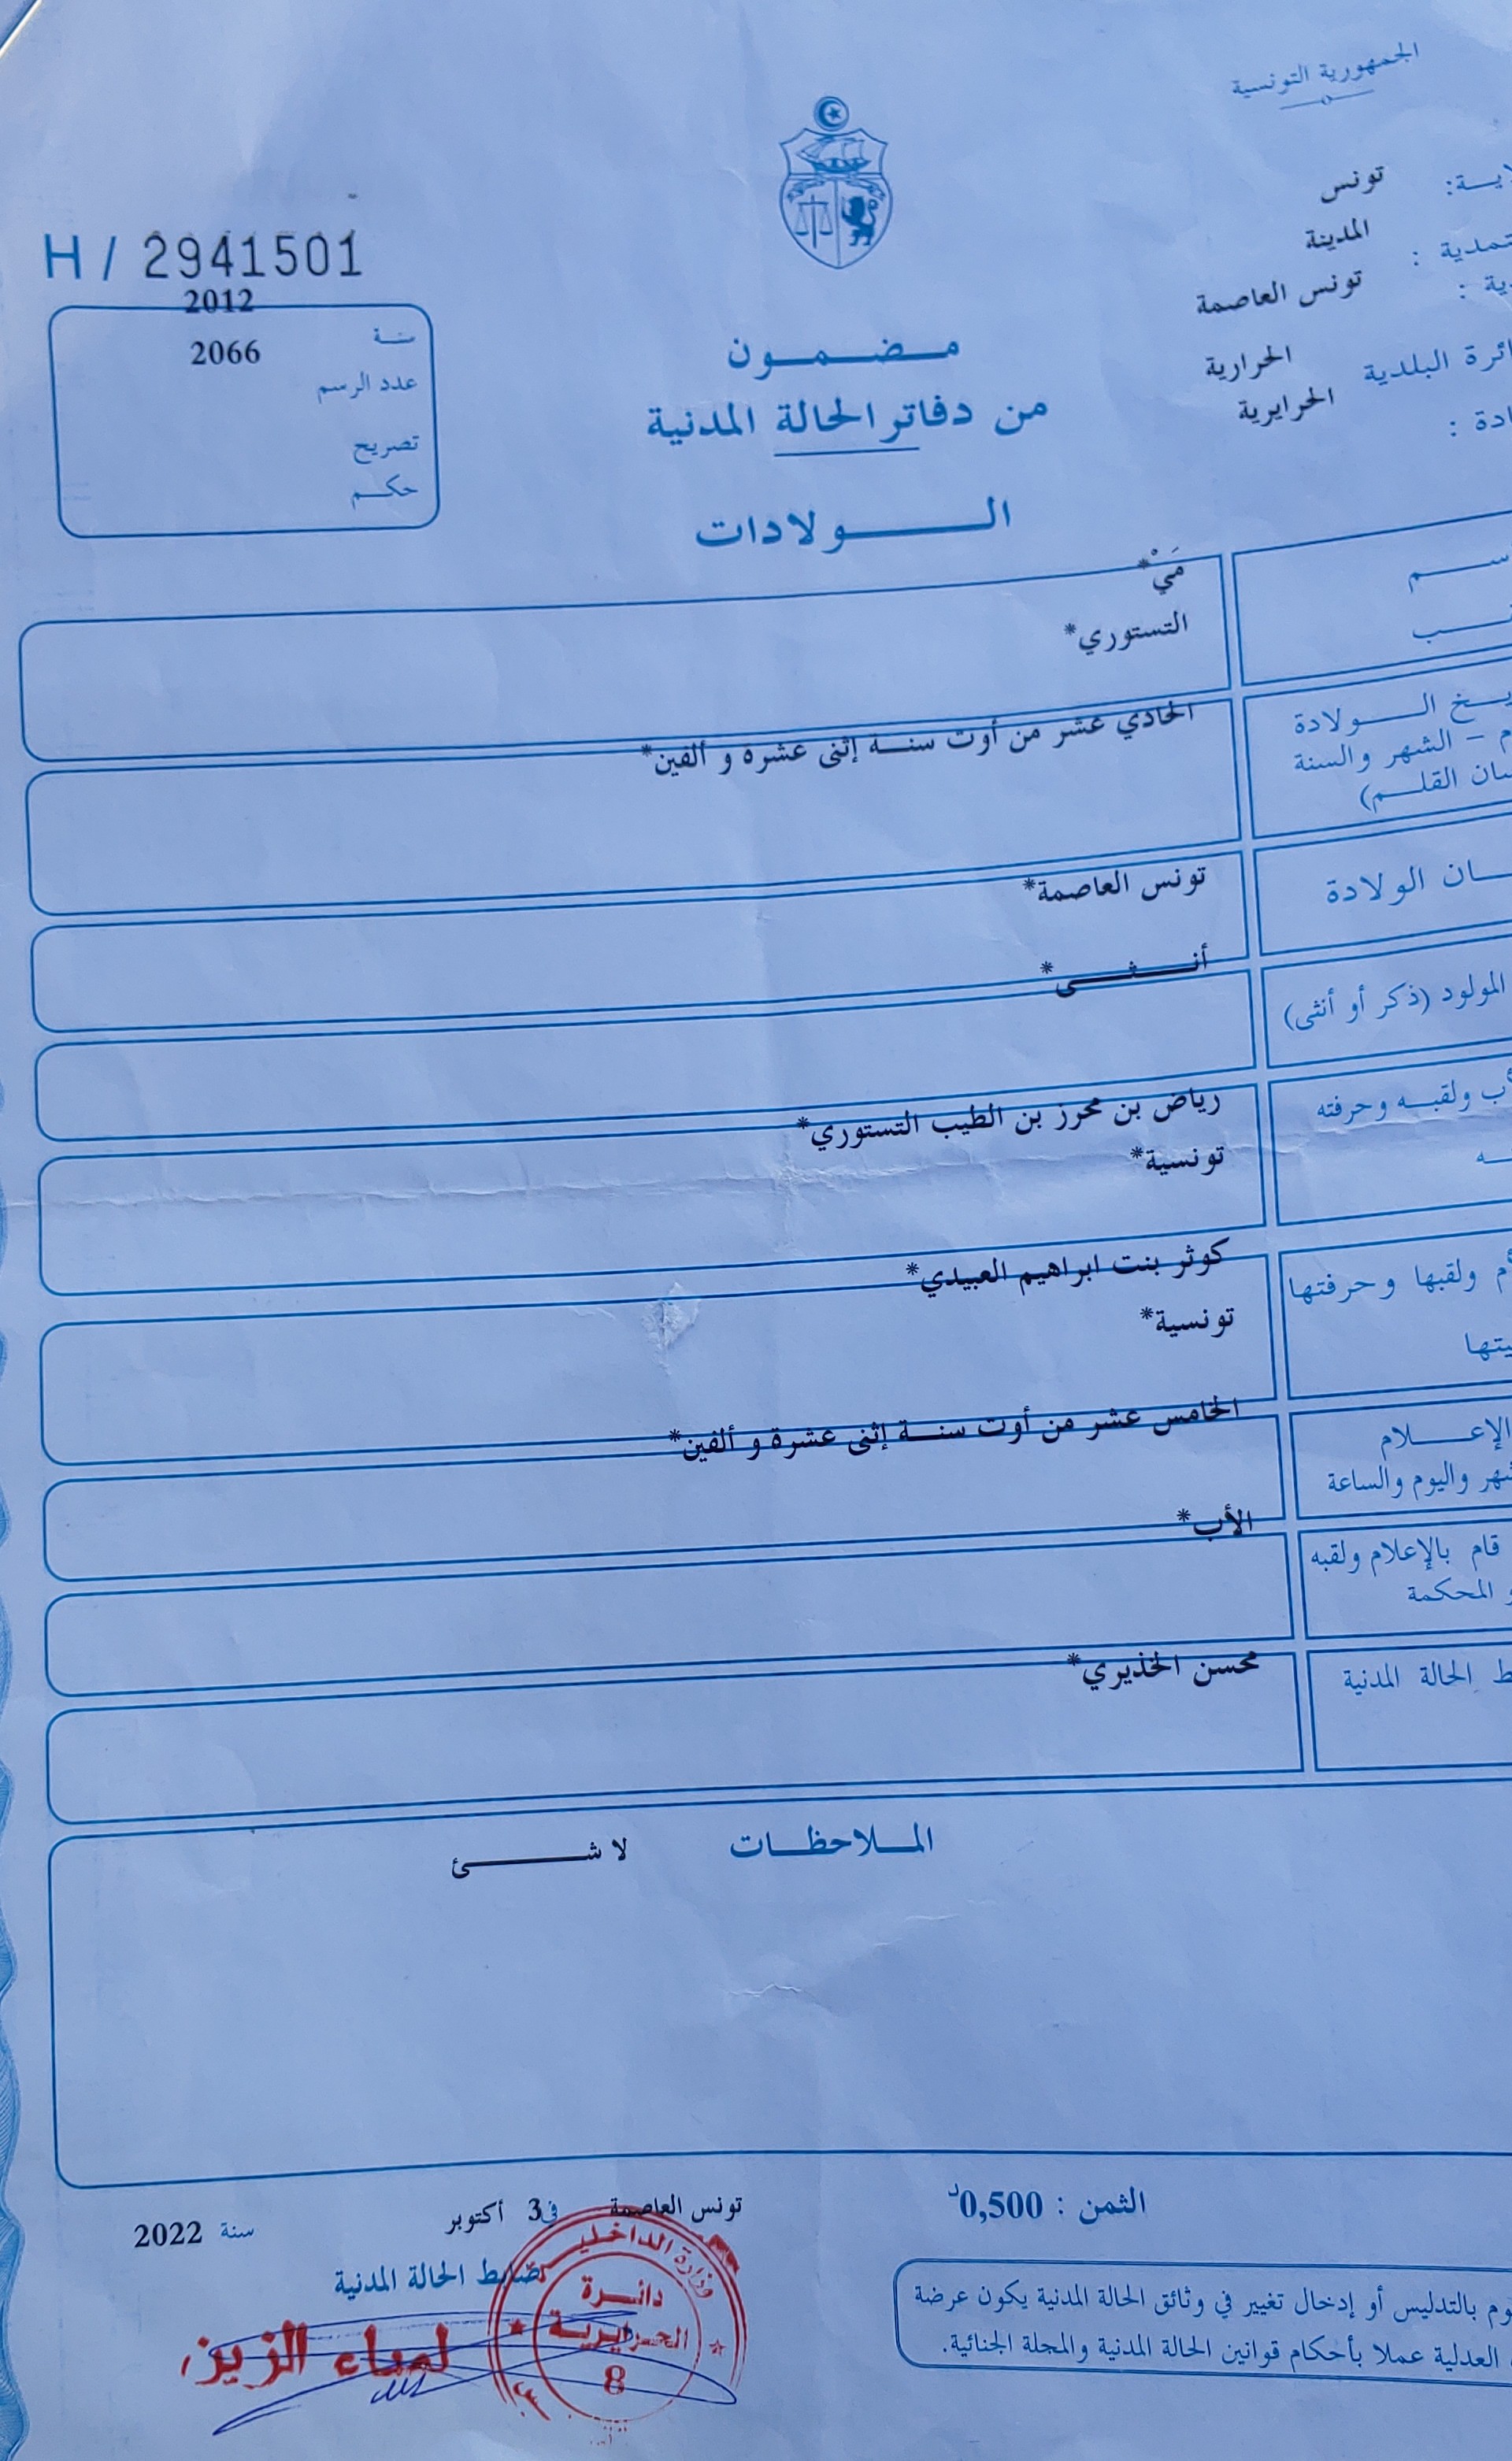 الجمهورية التونسية
تونس
المدينة
تونس العاصمة
البلدية الحرارية
الحرايرية
H / 2941501
2012
سنة
2066
عدد الرسم
تصريح
حكم
مضمون
من دفاتر الحالة المدنية
الولادات
مَيْ*
التستوري*
الولادة الحادي عشر من أوت سنة إثنى عشرة و ألفين*
– الشهر والسنة
القلم)
الولادة تونس العاصمة*
المولود (ذكر أو أنثى) أنثى*
ولقبه وحرفته رياض بن محرز بن الطيب التستوري*
تونسية*
ولقبها وحرفتها كوثر بنت ابراهيم العبيدي*
تونسية*
الإعلام الخامس عشر من أوت سنة إثنى عشرة و ألفين*
واليوم والساعة
قام بالإعلام ولقبه الأب*
المحكمة
الحالة المدنية محسن الخذيري*
الملاحظات لا شئ
الثمن : 0,500د
تونس العاصمة في 3 أكتوبر سنة 2022
ضابط الحالة المدنية
وزارة الداخلية
دائرة
الحرايرية
8
لمياء
بالتدليس أو إدخال تغيير في وثائق الحالة المدنية يكون عرضة
العدلية عملا بأحكام قوانين الحالة المدنية والمجلة الجنائية.